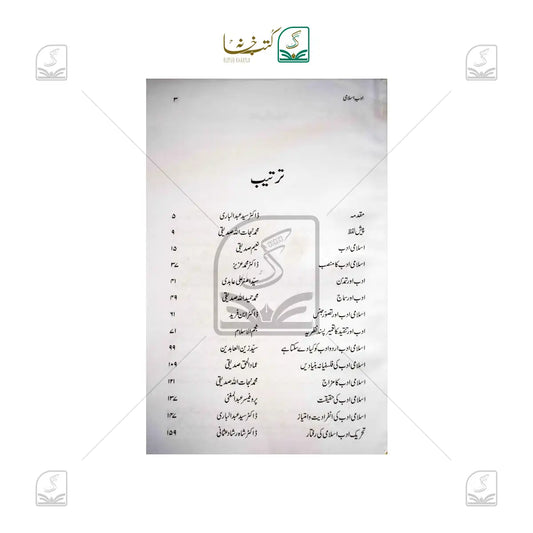 کتب خانہ
ادب اسلامی ۳
ترتیب
مقدمہ ڈاکٹر سید عبدالباری ۵
پیش لفظ محمد نجات اللہ صدیقی ۹
اسلامی ادب نعیم صدیقی ۱۵
اسلامی ادب کا منصب ڈاکٹر محمد عزیز ۳۷
ادب اور تمدن سید اصغر علی عابدی ۴۱
ادب اور سماج محمد حمید اللہ صدیقی ۴۹
اسلامی ادب اور تصور جنس ڈاکٹر ابن فرید ۶۱
ادب اور تنقید کا تعمیر پسند نظریہ نجم الاسلام ۷۱
اسلامی ادب اردو ادب کو کیا دے سکتا ہے سید زین العابدین ۹۹
اسلامی ادب کی فلسفیانہ بنیادیں عماد الحق صدیقی ۱۰۹
اسلامی ادب کا مزاج محمد نجات اللہ صدیقی ۱۲۱
اسلامی ادب کی حقیقت پروفیسر عبدالمغنی ۱۳۷
اسلامی ادب کی انفرادیت و امتیاز ڈاکٹر سید عبدالباری ۱۴۷
تحریک ادب اسلامی کی رفتار ڈاکٹر شاہ رشاد عثمانی ۱۵۹